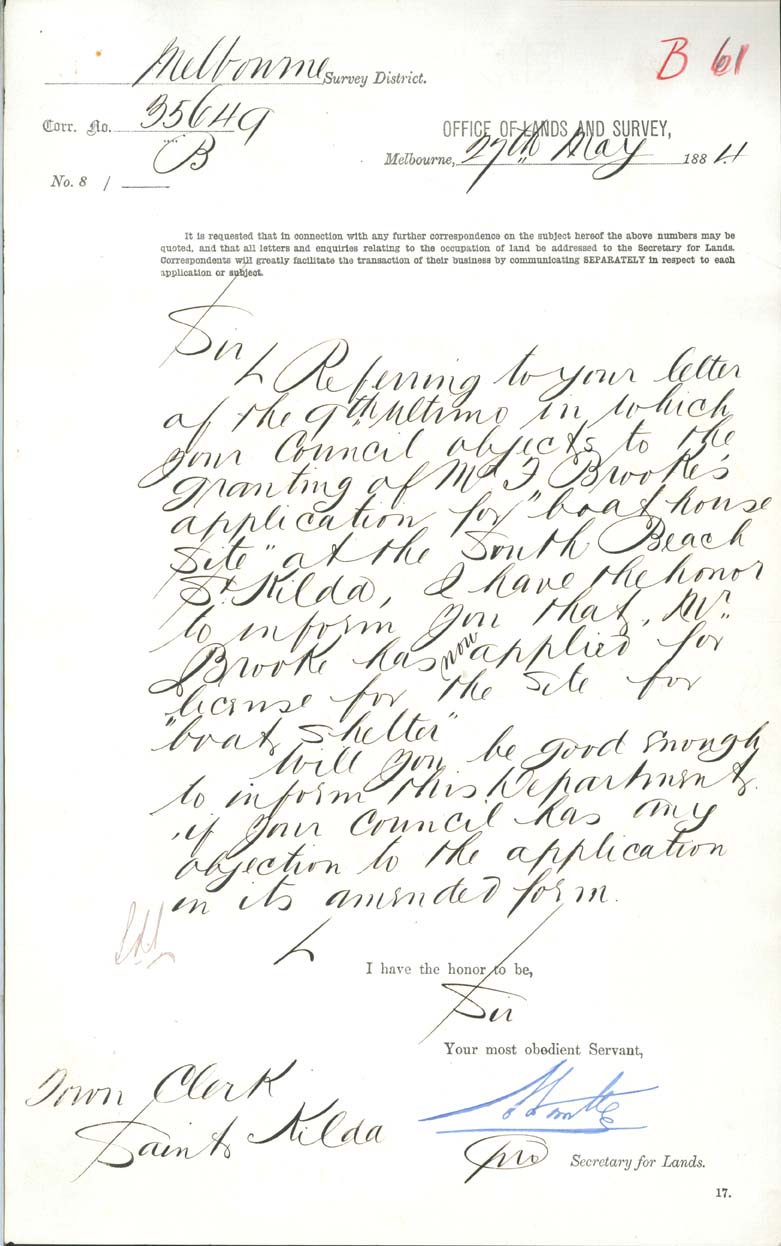 B 61
Melbourne Survey District.
Corr. No. 35649
B
OFFICE OF LANDS AND SURVEY,
Melbourne, 27th May 1884
No. 8 /
It is requested that in connection with any further correspondence on the subject hereof the above numbers may be
quoted, and that all letters and enquiries relating to the occupation of land be addressed to the Secretary for Lands.
Correspondents will greatly facilitate the transaction of their business by communicating SEPARATELY in respect to each
application or subject.
Sir
Referring to your letter
of the 9th ultimo in which
your Council objects to the
granting of Mr J Brooke's
application for "boat house
site" at the South Beach
St Kilda, I have the honor
to inform you that, Mr.
Brooke has now applied for
license for the site for
"boat shelter"
Will you be good enough
to inform this Department
if your Council has any
objection to the application
in its amended form.
I have the honor to be,
Sir
Your most obedient Servant,
Town Clerk
Saint Kilda
pro Secretary for Lands.
17.